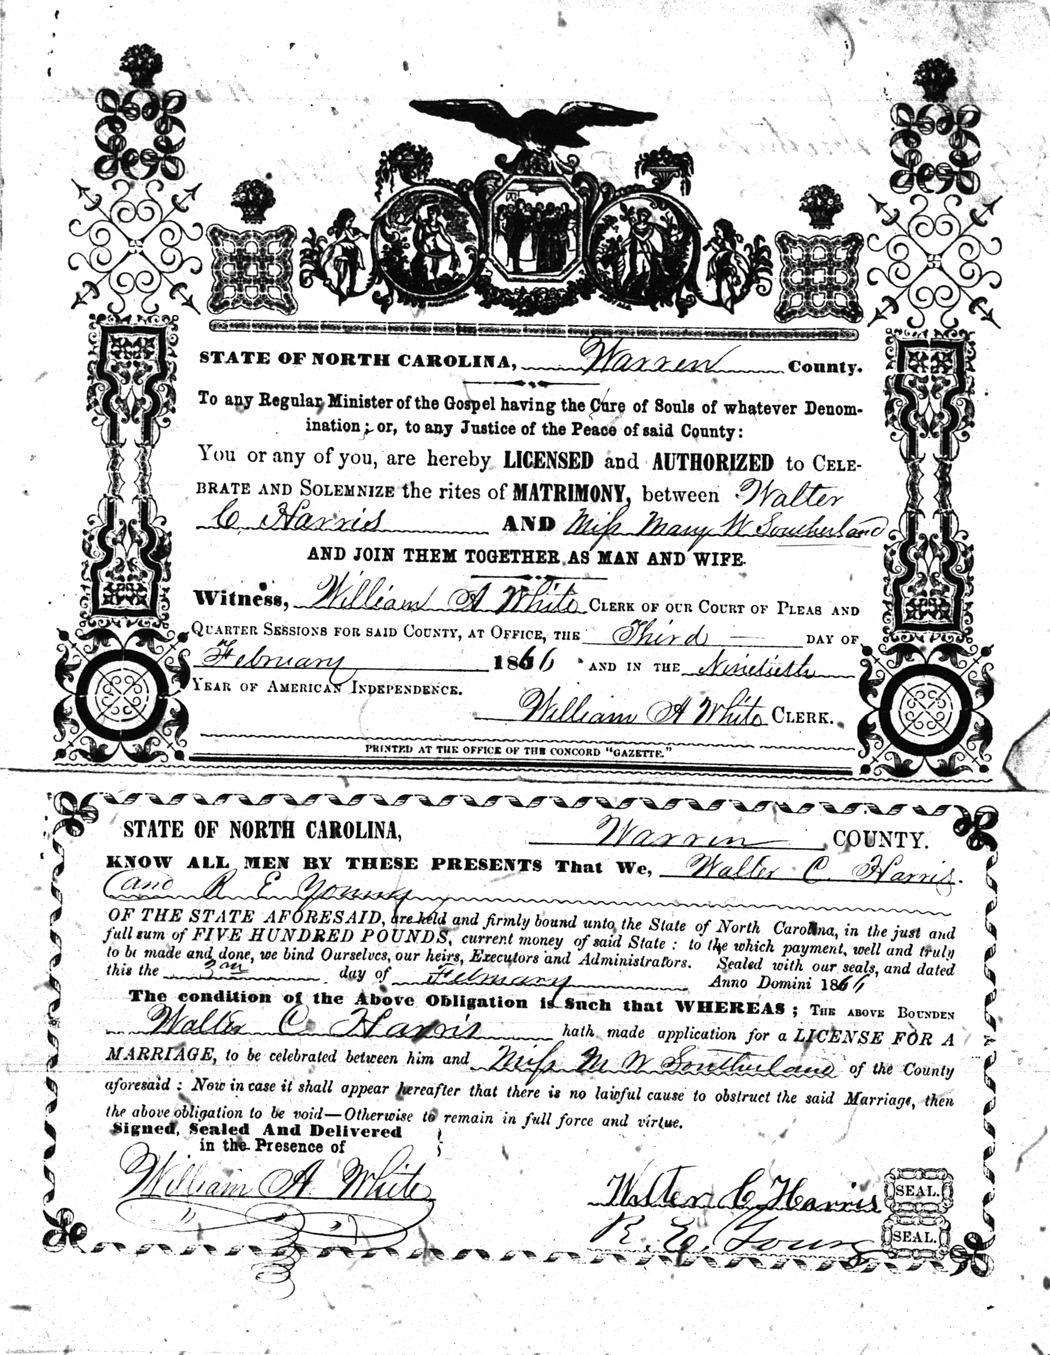 STATE OF NORTH CAROLINA, Warren County.
To any Regular Minister of the Gospel having the Cure of Souls of whatever Denom-
ination; or, to any Justice of the Peace of said County:
You or any of you, are hereby LICENSED and AUTHORIZED to CELE-
BRATE AND SOLEMNIZE the rites of MATRIMONY, between Walter
C Harris AND Miss Mary W Southerland
AND JOIN THEM TOGETHER AS MAN AND WIFE.
Witness, William A White CLERK OF OUR COURT OF PLEAS AND
QUARTER SESSIONS FOR SAID COUNTY, AT OFFICE, THE Third DAY OF
February 1866 AND IN THE Ninetieth
YEAR OF AMERICAN INDEPENDENCE.
William A White CLERK.
PRINTED AT THE OFFICE OF THE CONCORD "GAZETTE."
STATE OF NORTH CAROLINA, Warren COUNTY.
KNOW ALL MEN BY THESE PRESENTS That We, Walter C. Harris.
and R E Young
OF THE STATE AFORESAID, are held and firmly bound unto the State of North Carolina, in the just and
full sum of FIVE HUNDRED POUNDS, current money of said State: to the which payment, well and truly
to be made and done, we bind Ourselves, our heirs, Executors and Administrators. Sealed with our seals, and dated
this the day of February Anno Domini 1866
The condition of the Above Obligation is Such that WHEREAS; THE ABOVE BOUNDEN
Walter C. Harris hath made application for a LICENSE FOR A
MARRIAGE, to be celebrated between him and Miss M W Southerland of the County
aforesaid: Now in case it shall appear hereafter that there is no lawful cause to obstruct the said Marriage, then
the above obligation to be void—Otherwise to remain in full force and virtue.
Signed, Sealed And Delivered
in the Presence of
William A. White
Walter C Harris SEAL.
R. E. Young SEAL.